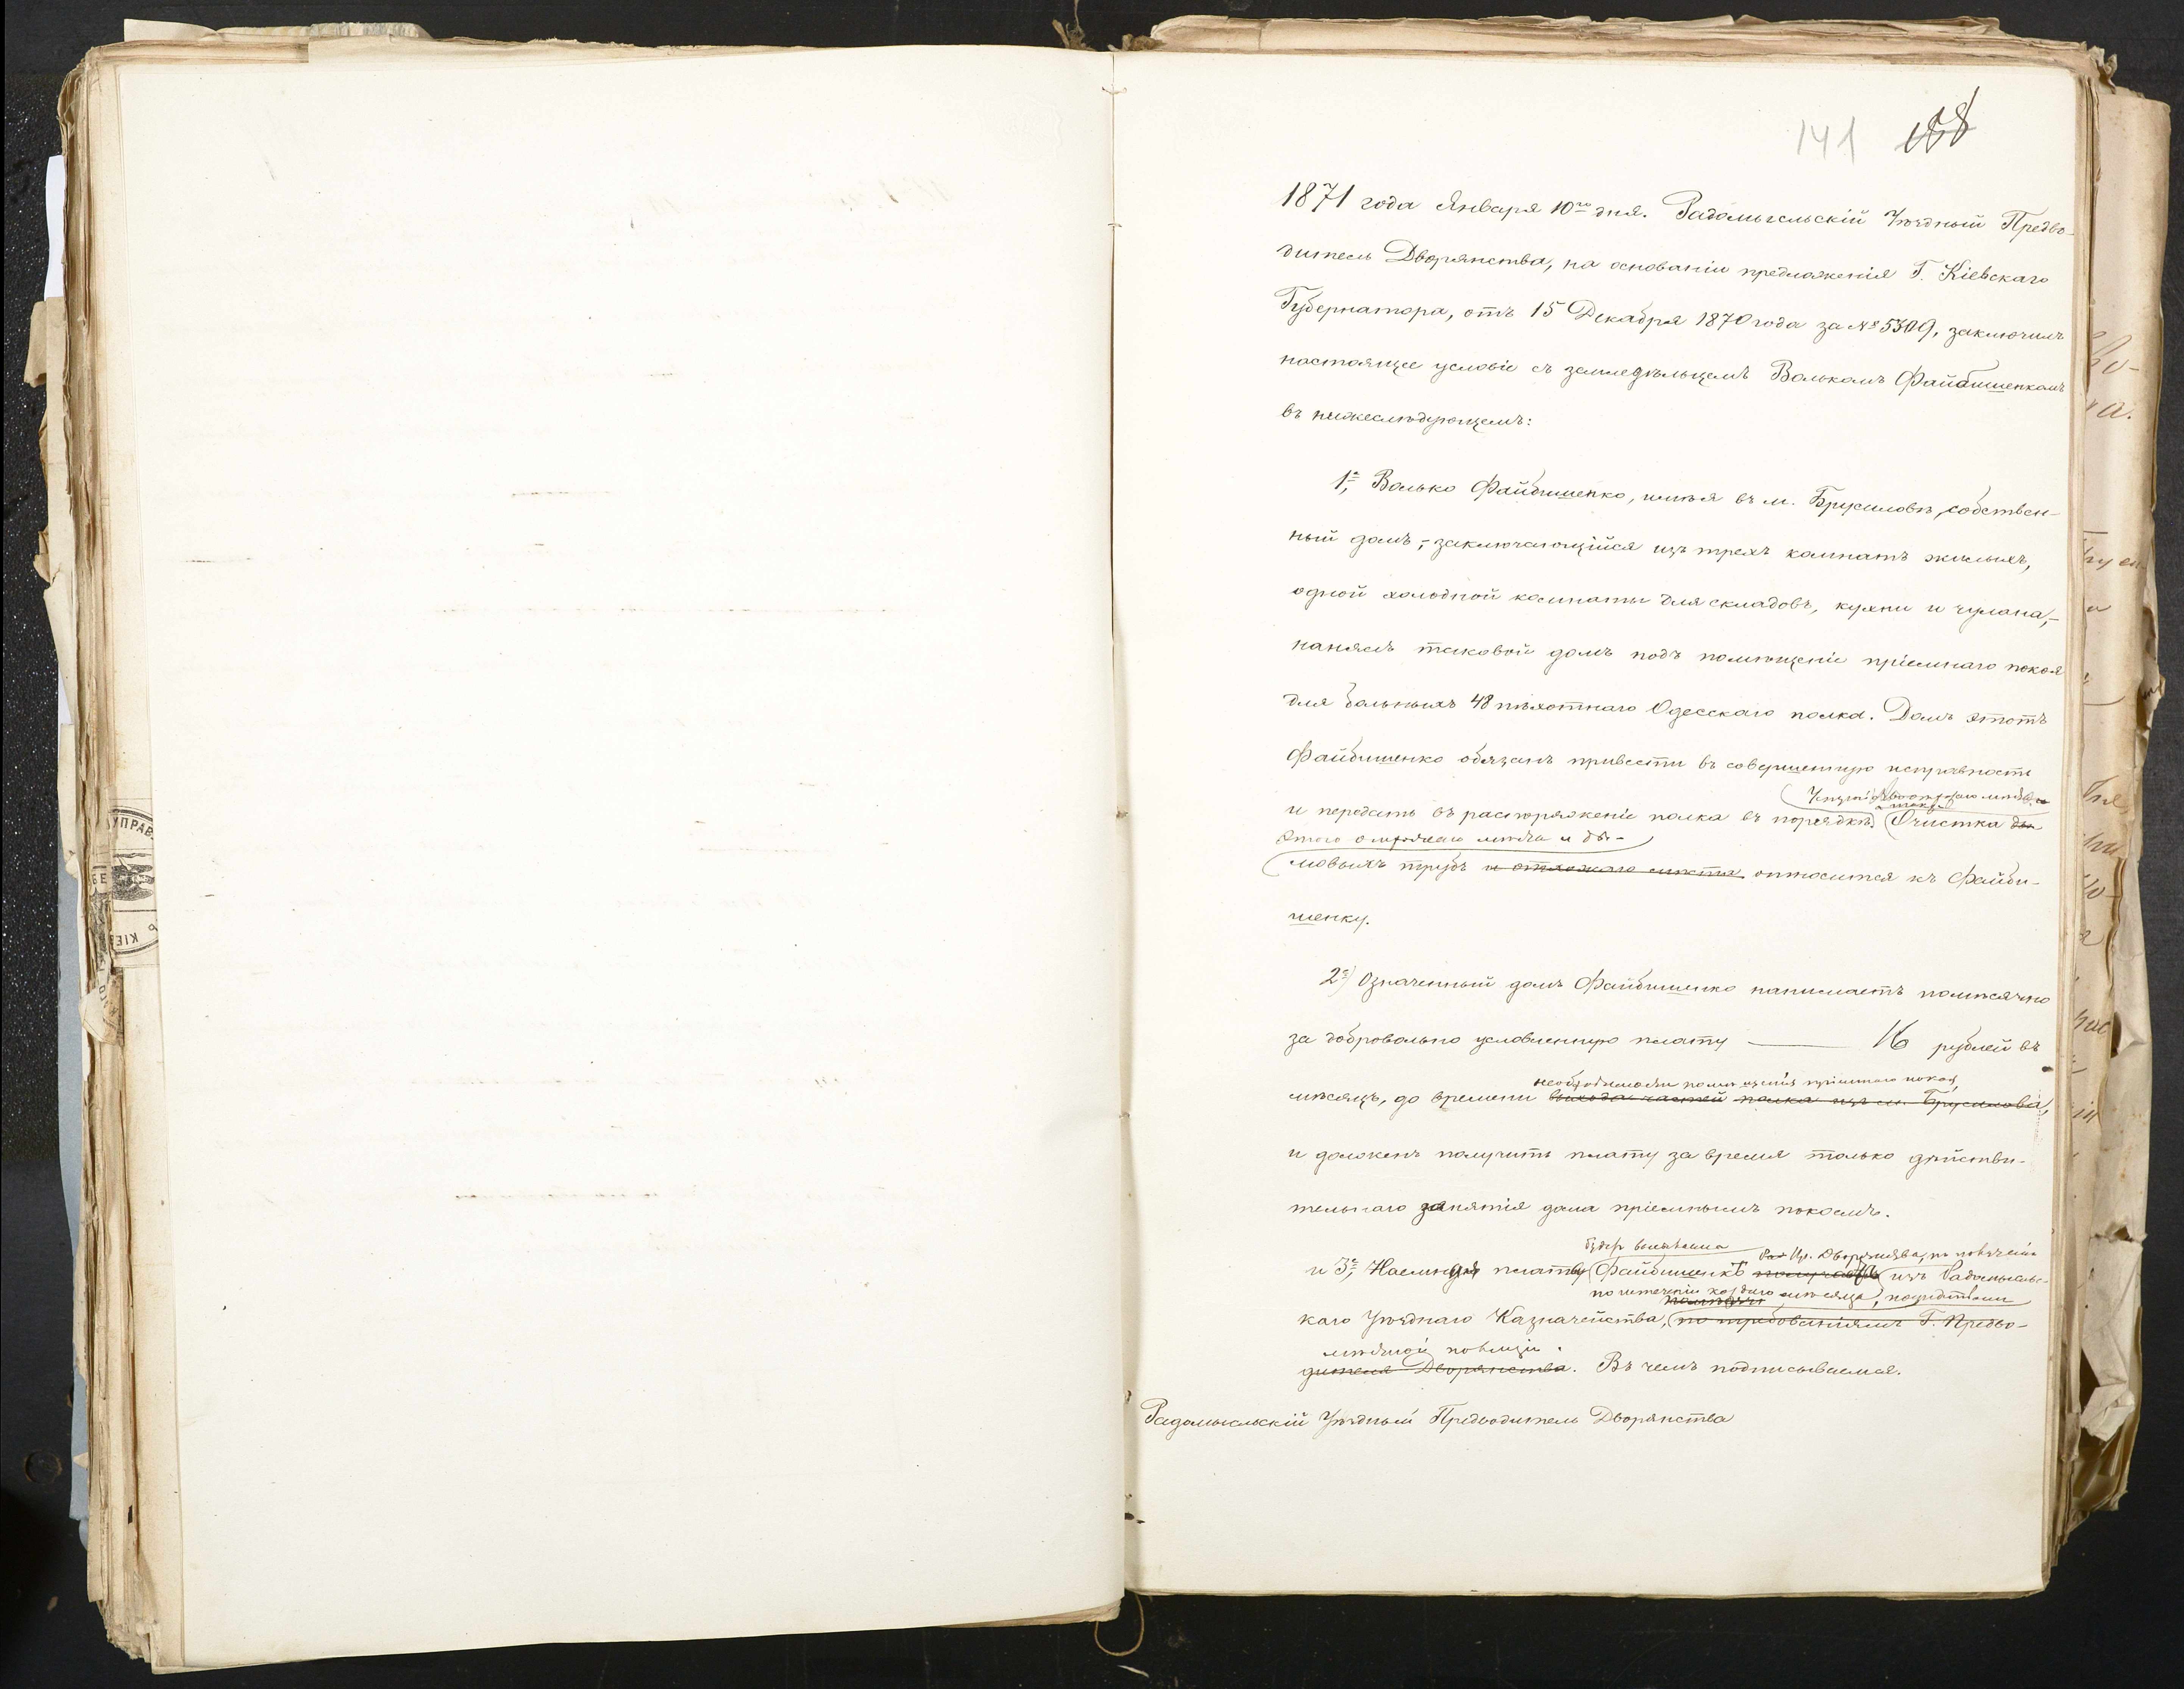 141 188
1871 года Января 10го дня. Радомысльскій Уѣздный Предво-
дитель Дворянства, на основаніи предложенія Г. Кіевскаго
Губернатора, отъ 15 Декабря 1870 года за № 5309, заключилъ
настоящее условіе съ земледѣльцемъ Волькомъ Файбишенкомъ
въ нижеслѣдующемъ:
1е, Волько Файбишенко, имѣя въ м. Брусиловѣ, собствен-
ный домъ,- заключающійся изъ трехъ комнатъ жилыхъ,
одной холодной комнаты для складовъ, кухни и чулана,-
нанялъ таковой домъ подъ помѣщеніе пріемнаго покоя
для больныхъ 48 пѣхотнаго Одесскаго полка. Домъ этотъ
Файбишенко обязанъ привести въ совершенную исправность
и передать въ распоряженіе полка въ порядкѣ. Очистка ды-
этого отхожаго мѣста и ды-
мовыхъ трубъ и отхожаго мѣста относится къ Файби-
шенку.
2е) Означенный домъ Файбишенко нанимаетъ помѣсячно
за добровольно условленную плату — 16 рублей въ
необходимости помѣщенія пріемнаго покоя,
мѣсяцъ, до времени выхода частей полка изъ м. Брусилова,
и долженъ получить плату за время только дѣйстви-
тельнаго занятія дома пріемнымъ покоемъ.
будетъ высылаема Пр. Дворянства, по полученіи
и 3е, Наемная плата Файбишенкѣ получаетъ изъ Радомысльс-
по истеченіи каждаго мѣсяца, посредствомъ
помѣсячно
каго Уѣзднаго Казначейства, по требованіямъ Г. Предво-
мѣстной полиціи.
дителя Дворянства. Въ чемъ подписываемся.
Радомысльскій Уѣздный Предводитель Дворянства